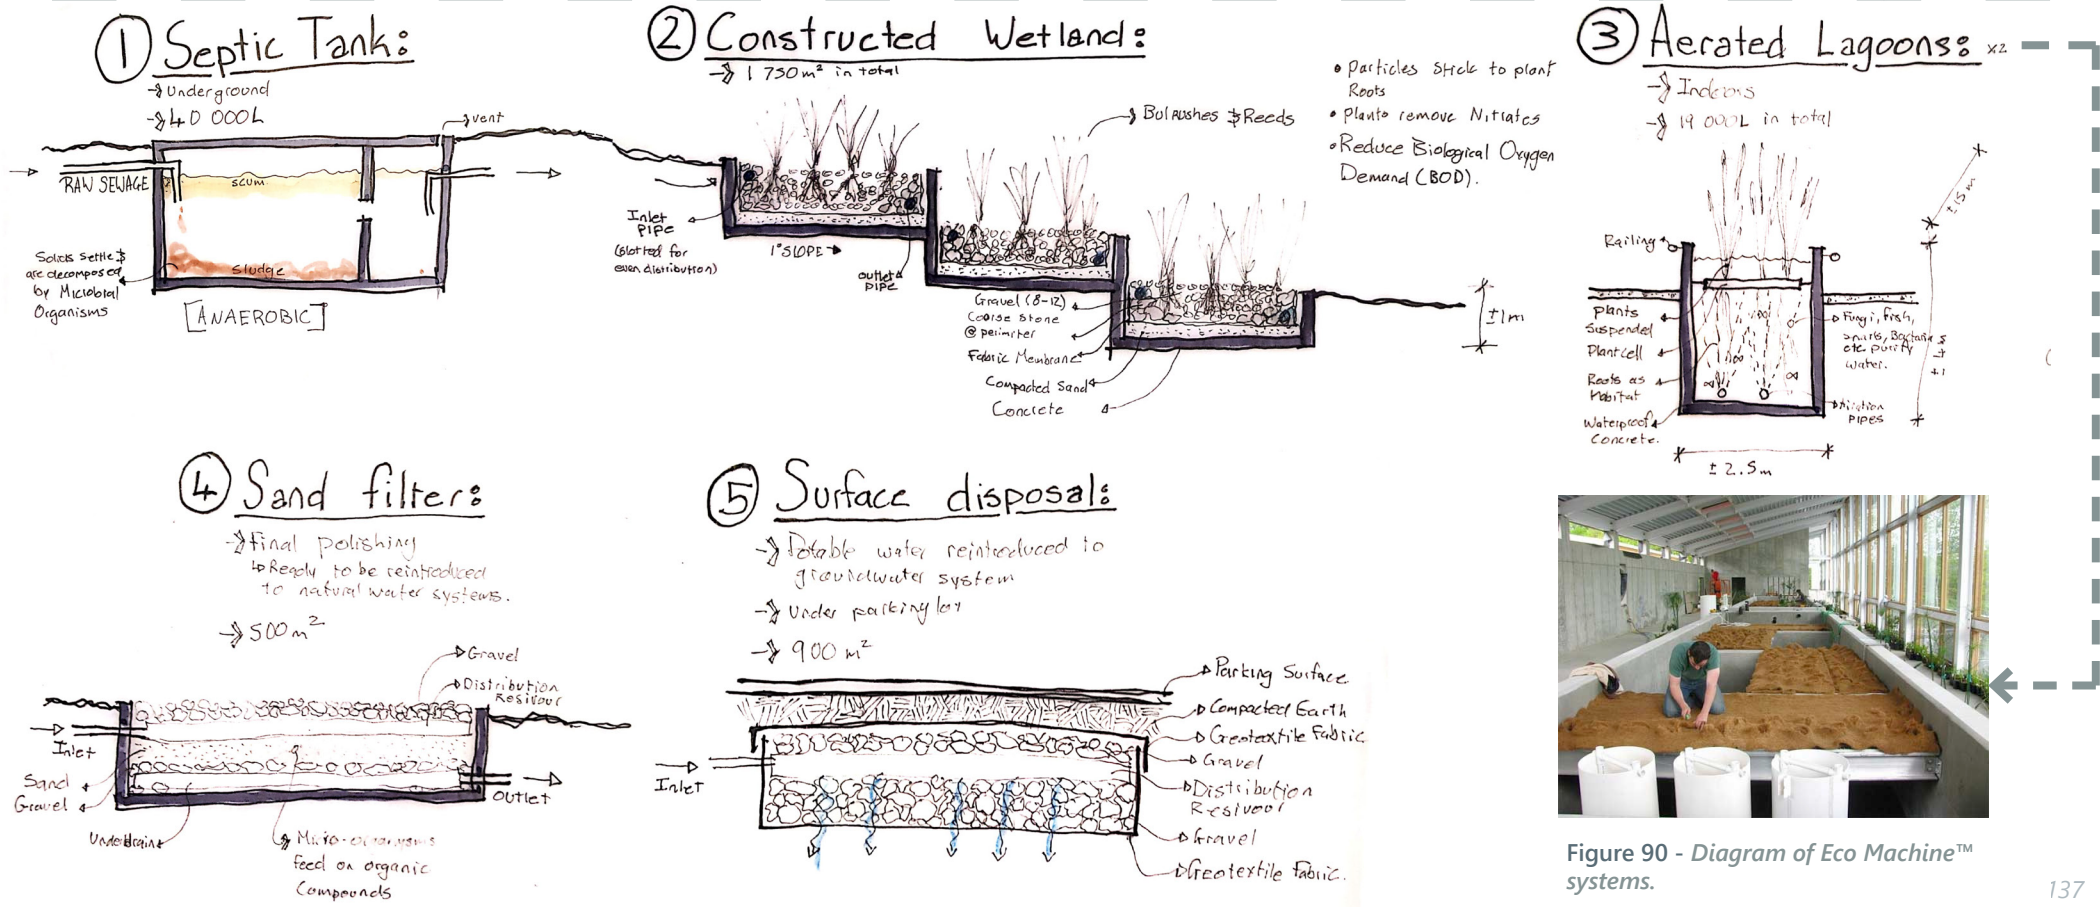 ① Septic Tank:
→ Underground
→ 40 000L
vent
RAW SEWAGE
scum
Sludge
Solids Settle &
are decomposed
by Microbial
Organisms
[ANAEROBIC]
② Constructed Wetland:
→ 1 750m² in total
Bulrushes & Reeds
• Particles Stick to plant
Roots
• Plants remove Nitrates
• Reduce Biological Oxygen
Demand (BOD).
Inlet
PIPE
(slotted for
even distribution)
1° SLOPE →
outlet
PIPE
Gravel (8-12)
Coarse Stone
@ perimiter
Fabric Membrane
Compacted Sand
Concrete
±1m
③ Aerated Lagoons: x2
→ Indoors
→ 19 000L in total
±15m
Railing
Plants
Suspended
Plant cell
Roots as
Habitat
Waterproof
Concrete.
Fungi, fish,
snails, Bacteria
etc. purify
water.
PIPES
± 2.5m
④ Sand filter:
→ Final polishing
↳ Ready to be reintroduced
to natural water systems.
→ 500m²
Gravel
Distribution
Resivour
Inlet
Sand
Gravel
Outlet
Underdrain
Micro-organisms
feed on organic
Compounds
⑤ Surface disposal:
→ Potable water reintroduced to
groundwater system
→ Under parking lot
→ 900 m²
Parking Surface
Compacted Earth
Geotextile Fabric
Gravel
Inlet
Distribution
Resivour
Gravel
Geotextile Fabric.
Figure 90 - Diagram of Eco Machine™
systems.
137